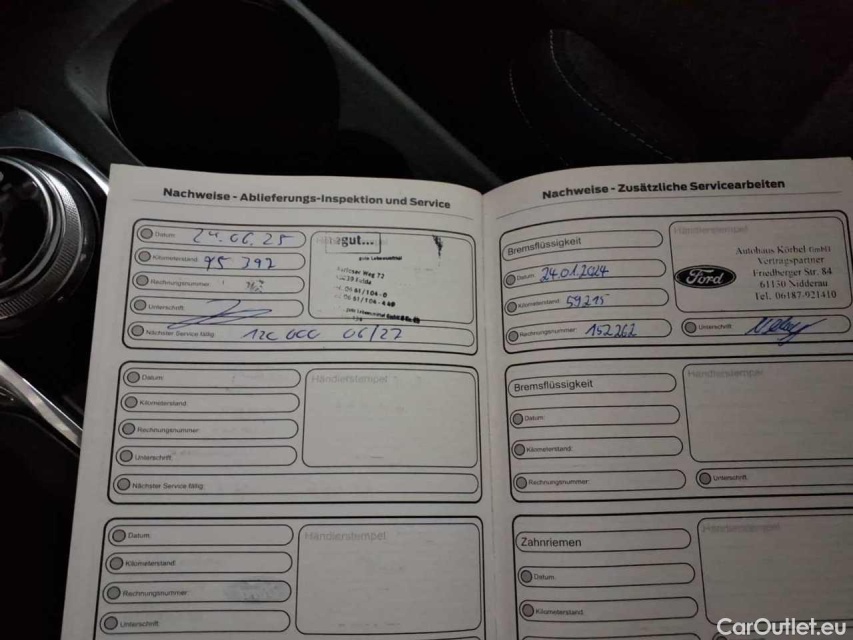 Nachweise - Ablieferungs-Inspektion und Service
Datum: 24.06.25
Kilometerstand: 95 392
Rechnungsnummer:
Unterschrift:
Nächster Service fällig: 120 000 06/27
Händlerstempel
tegut...
gute Lebensmittel
Weg 72
Fulda
06 61/104-0
06 61/104-4
Datum:
Kilometerstand:
Rechnungsnummer:
Unterschrift:
Nächster Service fällig:
Händlerstempel
Datum:
Kilometerstand:
Rechnungsnummer:
Unterschrift:
Händlerstempel
Nachweise - Zusätzliche Servicearbeiten
Bremsflüssigkeit
Datum: 24.01.2024
Kilometerstand: 59215
Rechnungsnummer: 152262
Händlerstempel
Ford
Autohaus Körbel GmbH
Vertragspartner
Friedberger Str. 84
61130 Nidderau
Tel. 06187-921410
Unterschrift:
Bremsflüssigkeit
Datum:
Kilometerstand:
Rechnungsnummer:
Händlerstempel
Unterschrift:
Zahnriemen
Datum:
Kilometerstand:
Händlerstempel
CarOutlet.eu